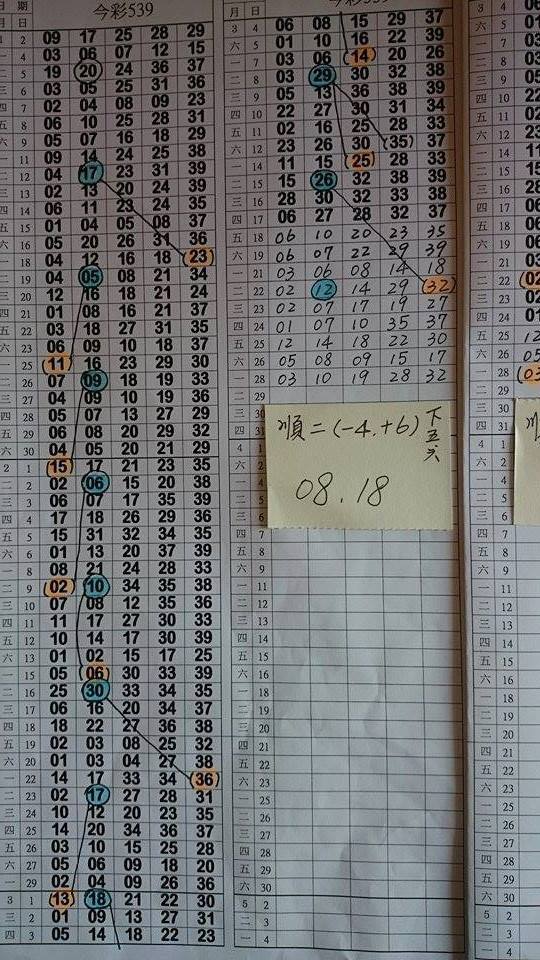 日 期 今彩539
1 2 09 17 25 28 29
一 4 03 06 07 12 15
二 5 19 20 24 36 37
三 6 03 05 25 31 36
四 7 02 04 08 09 23
五 8 06 10 25 28 31
六 9 05 07 16 18 29
一 11 09 14 24 25 38
二 12 04 17 23 31 39
三 13 02 13 20 24 39
四 14 06 11 23 24 35
五 15 01 04 05 08 37
六 16 05 20 26 31 36
一 18 04 12 16 18 23
二 19 04 05 08 21 34
三 20 12 16 18 21 24
四 21 01 08 16 21 37
五 22 03 18 27 31 35
六 23 06 09 10 18 37
一 25 11 16 23 29 30
二 26 07 09 18 19 33
三 27 04 09 10 19 36
四 28 05 07 13 27 29
五 29 06 08 20 29 32
六 30 04 05 20 21 29
2 1 15 17 21 23 35
二 2 02 06 15 20 38
三 3 06 07 17 35 39
四 4 17 18 26 29 36
五 5 15 31 32 34 35
六 6 01 13 20 37 39
一 8 08 21 24 28 33
二 9 02 10 34 35 38
三 10 07 08 12 35 36
四 11 11 17 27 30 33
五 12 10 14 17 30 39
六 13 01 02 15 17 25
一 15 05 06 30 33 39
二 16 25 30 33 34 35
三 17 06 16 20 34 37
四 18 18 22 27 36 38
五 19 02 03 08 25 32
六 20 01 03 04 27 38
一 22 14 17 33 34 36
二 23 02 17 27 28 31
三 24 10 12 20 23 35
四 25 14 20 34 36 37
五 26 03 10 15 25 28
六 27 05 06 09 18 20
一 29 02 04 09 26 36
3 1 13 18 21 22 30
三 2 01 09 13 27 31
四 3 05 14 18 22 23
月 日 今彩539
3 4 06 08 15 29 37
六 5 01 10 16 22 39
一 7 03 06 14 20 26
二 8 03 29 30 32 38
三 9 05 13 36 38 39
四 10 22 27 30 31 34
五 11 02 16 25 28 33
六 12 23 26 30 35 37
一 14 11 15 25 28 33
二 15 15 26 32 38 39
三 16 28 30 32 33 38
四 17 06 27 28 32 37
五 18 06 10 20 23 35
六 19 06 07 22 29 39
一 21 03 06 08 14 18
二 22 02 12 14 29 32
三 23 02 07 17 19 27
四 24 01 07 10 35 37
五 25 12 14 18 22 30
六 26 05 08 09 15 17
一 28 03 10 19 28 32
二 29
三 30
四 31
4 1
六 2
順=(-4.+6) 下五六
08.18
四 7
五 8
六 9
一 11
二 12
三 13
四 14
五 15
六 16
一 18
二 19
三 20
四 21
五 22
六 23
一 25
二 26
三 27
四 28
五 29
六 30
5 2
二 3
一 4